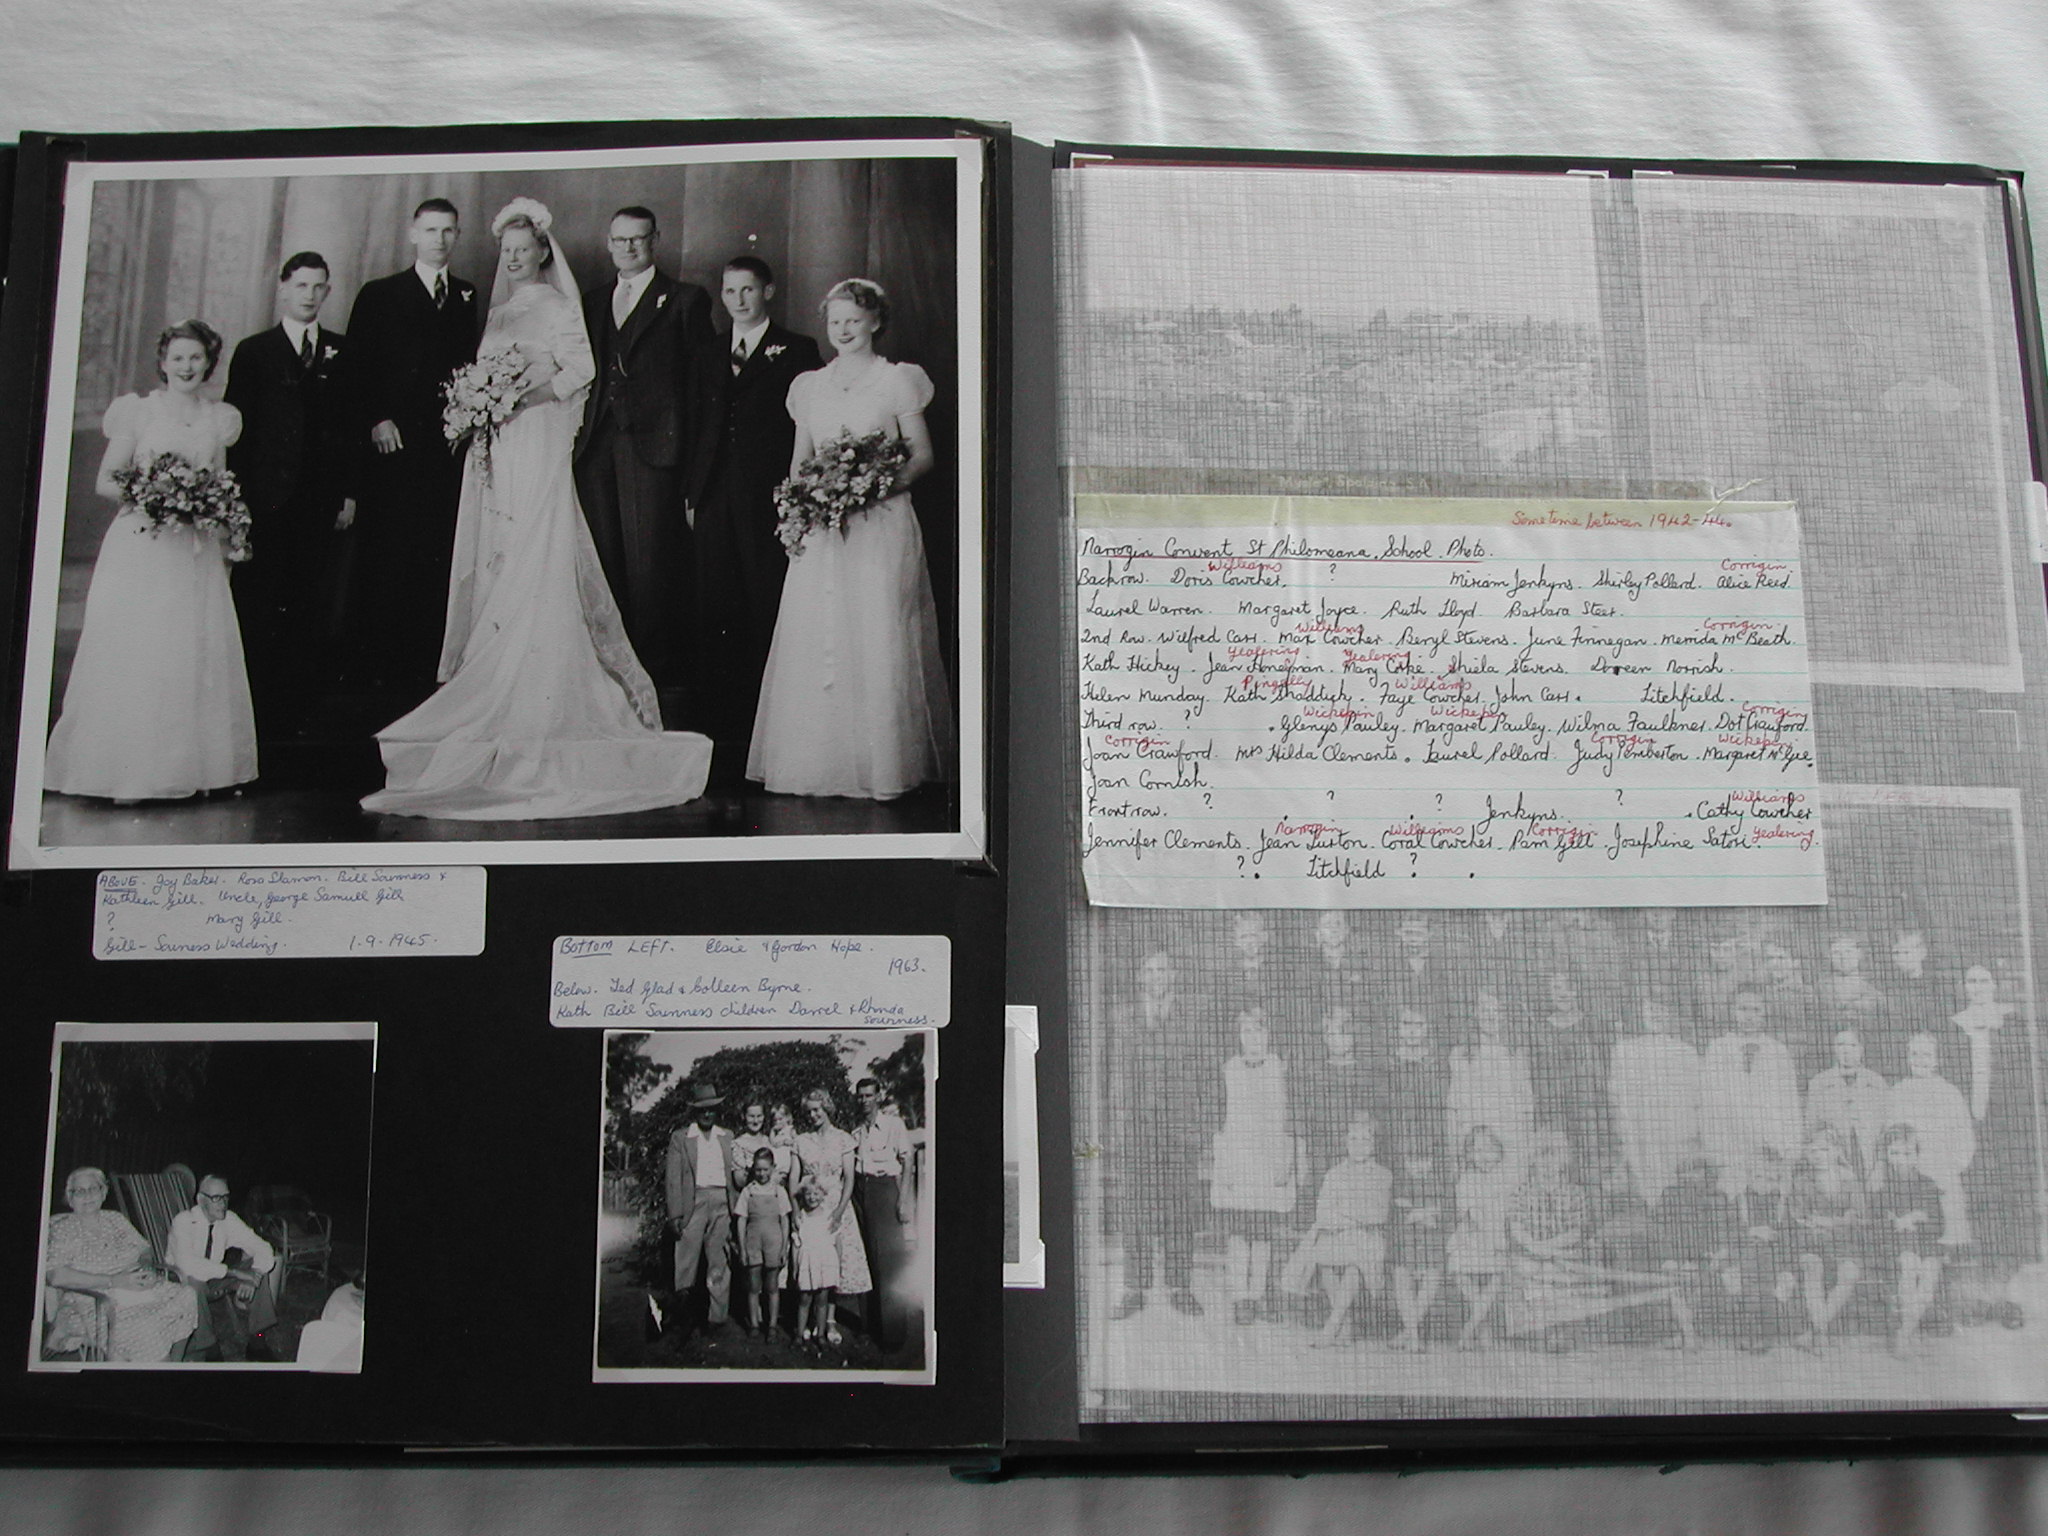 ABOVE. Joy Baker. Ross Slamon. Bill Sounness &
Kathleen Gill. Uncle, George Samuel Gill
? Mary Gill.
Gill - Souness Wedding. 1.9.1945.
BOTTOM LEFT. Elsie & Gordon Hope.
1963.
Below. Ted Glad & Colleen Byrne.
Kath Bill Sounness children Darrel & Rhonda
Sounness.
Sometime between 1942-44.
Narrogin Convent St Philomeana School Photo.
Williams Corrigin
Back row. Doris Cowcher. ? Miriam Jenkyns. Shirley Pollard. Alice Reed.
Laurel Warren. Margaret Joyce. Ruth Lloyd Barbara Steer.
Williams Corrigin
2nd Row. Wilfred Carr. Max Cowcher. Beryl Stevens. June Finnegan. Merrida McBeath.
Yealering Yealering
Kath Hickey. Jean Honeyman. Mary Corke. Shiela Stevens. Doreen Norrish.
Pingelly Williams
Helen Munday. Kath Shaddick. Faye Cowcher. John Carr. Litchfield.
Wickepin Wickepin Corrigin
Third row. ? . Glenys Pauley. Margaret Pauley. Wilma Faulkner. Dot Crawford.
Corrigin Corrigin Wickepin
Joan Crawford. Mrs Hilda Clements. Laurel Pollard. Judy Pemberton. Margaret McGee.
Joan Cornish.
Williams
Front row. ? ? ? Jenkyns. ? . Cathy Cowcher
Narrogin Williams Corrigin Yealering
Jennifer Clements. Jean Turton. Coral Cowcher. Pam Gill. Josephine Satori.
? . Litchfield ? .